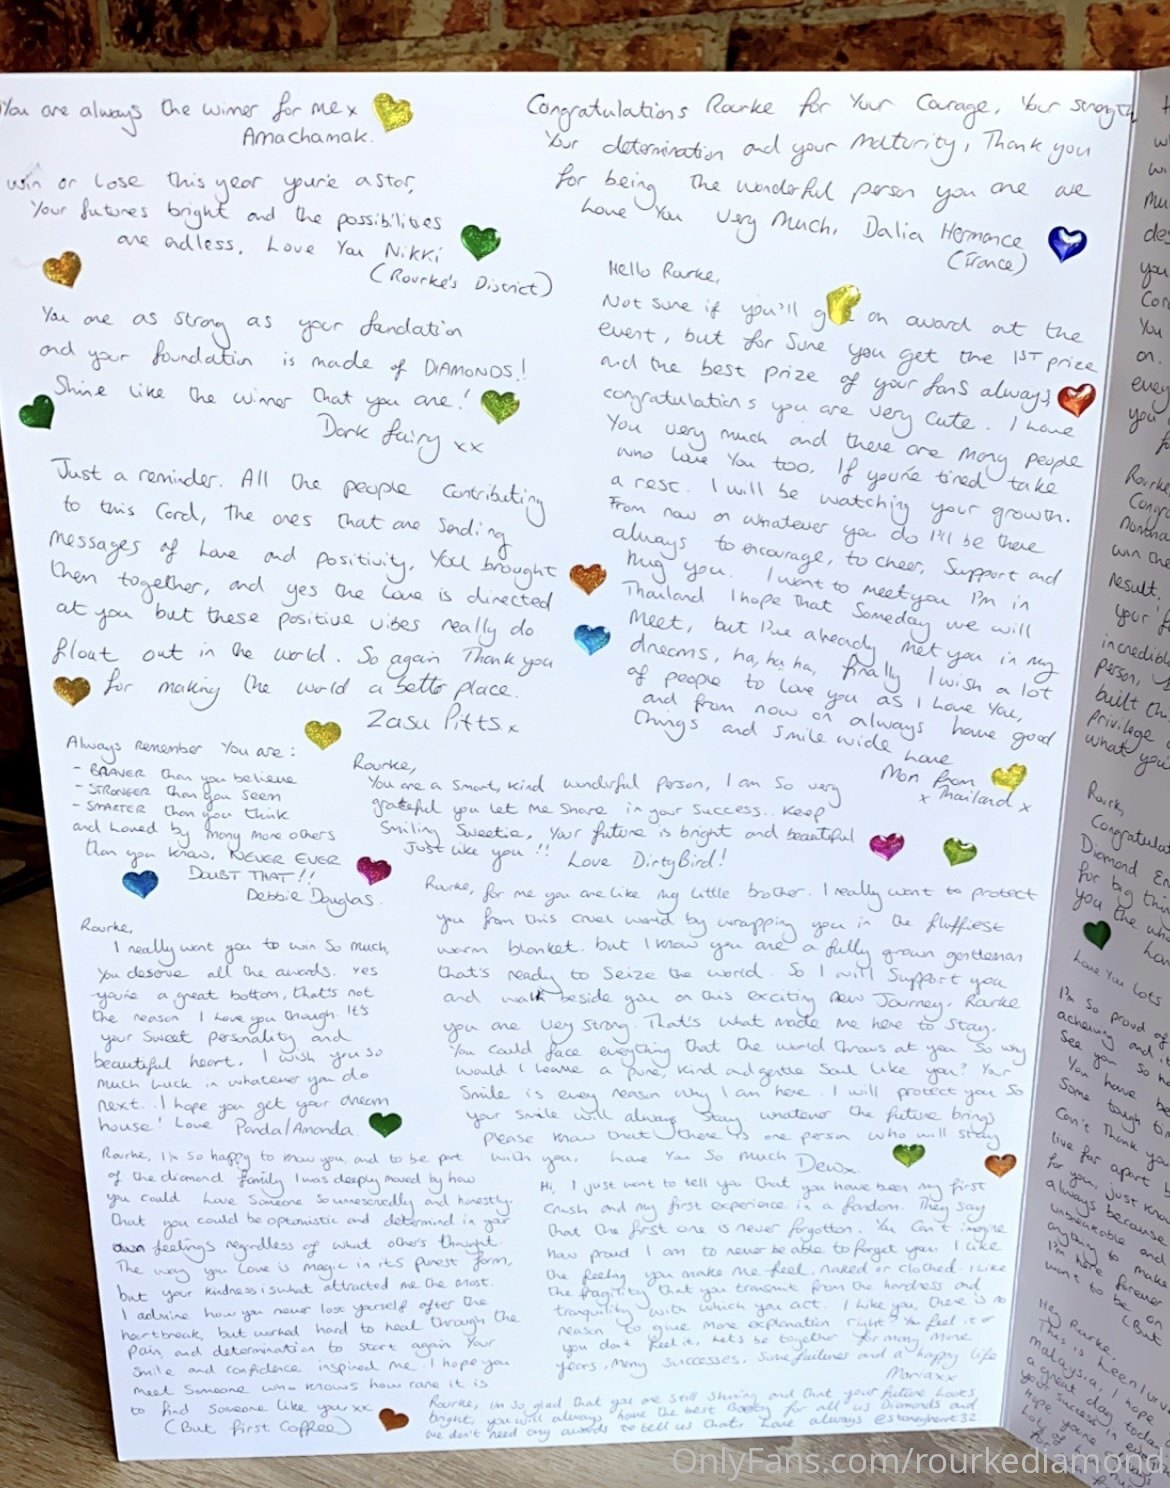 You are always the winner for me x
Amachamak.
win or lose this year you're a star,
Your futures bright and the possibilities
are endless. Love You Nikki
(Rourke's District)
You are as strong as your fundation
and your foundation is made of DIAMONDS!
Shine like the winner that you are!
Dark fairy xx
Just a reminder. All the people contributing
to this Card, the ones that are sending
messages of love and positivity, You brought
them together, and yes the love is directed
at you but these positive vibes really do
float out in the world. So again Thank you
for making the world a better place.
Zasu Pitts x
Always Remember You are:
- BRAVER than you believe
- STRONGER than you seem
- SMARTER than you think
and Loved by many more others
than you know. NEVER EVER
DOUBT THAT!!
Debbie Douglas.
Rourke,
I really want you to win so much,
You deserve all the awards. yes
you're a great bottom, that's not
the reason I love you though. It's
your sweet personality and
beautiful heart. I wish you so
much luck in whatever you do
next. I hope you get your dream
house! Love Panda/Amanda.
Rourke, I'm so happy to know you, and to be part
of the diamond family I was deeply moved by how
you could love someone so unreservedly and honestly.
that you could be optomistic and determind in your
own feelings regardless of what others thought.
The way you love is magic in its purest form,
but your kindness is what attracted me the most.
I admire how you never lost yourself after the
hartbreak, but worked hard to heal through the
pain, and determination to start again Your
smile and confidence inspired me. I hope you
meet someone who knows how rare it is
to find someone like you xx
(But first Coffee)
Congratulations Rourke for Your Courage, Your strength
Your determination and your maturity, Thank you
for being the wonderful person you are we
Love You very much, Dalia Hermance
(France)
Hello Rourke,
Not sure if you'll g on award at the
event, but for sure you get the 1ST prize
and the best prize of your fans always,
congratulations you are very cute. I Love
You very much and there are many people
who love you too. If you're tired take
a rest. I will be watching your growth.
From now on whatever you do I'll be there
always to encourage, to cheer, support and
hug you. I want to meet you I'm in
Thailand I hope that someday we will
meet, but I've already met you in my
dreams, ha, ha, ha, finally I wish a lot
of people to love you as I Love You,
and from now on always have good
things and smile wide Love
Mon from
x Thailand x
Rourke,
You are a smart, kind wonderful person, I am so very
grateful you let me share in your success.. Keep
smiling Sweetie, Your future is bright and beautiful
Just like you!! Love DirtyBird!
Rourke, for me you are like my little brother. I really want to protect
you from this cruel world by wrapping you in the fluffiest
warm blanket. but I know you are a fully grown gentleman
that's ready to seize the world. So I will support you
and walk beside you on this exciting new Journey. Rourke
you are very strong. That's what made me here to stay.
You could face everything that the world throws at you so why
would I leave a pure, kind and gentle soul like you? Your
smile is every reason why I am here. I will protect you so
your smile will always stay. whatever the future brings
please know that there is one person who will stay
with you. Love You So Much Dewx
Hi, I just want to tell you that you have been my first
crush and my first experience in a fandom. They say
that the first one is never forgotten. You can't imagine
how proud I am to never be able to forget you. I like
the feeling you make me feel, naked or clothed. I like
the fragility that you transmit from the hardness and
tranquility with which you act. I like you, there is no
reason to give more explanation right? You feel it or
you don't feel it. Let's be together for many more
years, many successes, some failures and a happy life
Maria xx
Rourke, im so glad that you are still shining and that your future looks
bright, you will always have the best Booty for all us Diamonds and
we don't need any awards to tell us that. Love always @stoneyheart32
Rourke
Congra
win the
result.
your f
incredibl
person, y
built th
Privilege
what you
Rourk,
Congratulat
Diamond En
for big thin
you the wh
Lov
Love You Lots
I'm so proud of
acheiving and it
See you so h
You have be
some tough tim
Can't Thank you
live far apart b
for you, just know
always because
unbeakable and
anything to make
I'm here forever
want to be on
(But
Hey Rourke,
This is
malaysia, I hope
a great day today
your success
OnlyFans.com/rourkediamond